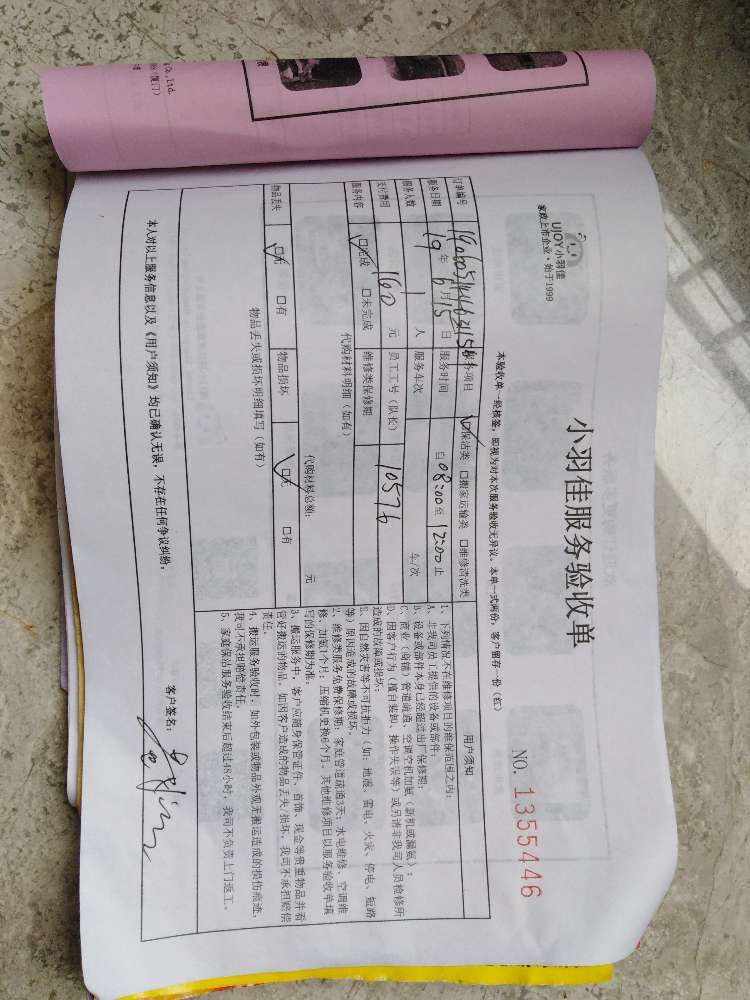 Co.,Ltd.
UJOY小羽佳
家政上市企业·始于1999
小羽佳服务验收单
NO. 1355446
本验收单一经核签,即视为对本次服务验收无异议。本单一式两份,客户留存一份(红)
订单编号
服务项目 ☑保洁类 □搬家运输类 □维修清洗类
服务日期 19年6月15日 服务时间 自08:00至12:00止
服务人数 1人 服务车次 车/次
支付费用 160元 员工工号(队长) 10576
服务内容 ☑完成 □未完成 维修类保修期
代购材料明细(如有)
代购材料总额: 元
物品丢失 ☑无 □有 物品损坏 ☑无 □有
物品丢失或损坏明细填写(如有)
用户须知
1、下列情况不在维修项目的维保范围之内:
A、非我司员工提供的设备或部件;
B、设备或部件本身已经超过出厂保修期;
C、商业(店铺)管道疏通、空调空机加氟(新机或漏氟);
D、因客户行为(擅自装卸、操作失误等)或另请非我司人员检修所
造成的故障或损坏;
E、因自然灾害等不可抗拒力(如:地震、雷电、火灾、停电、短路
等)原因造成的故障或损坏。
2、维修类服务免费保修期:家庭管道疏通3天;水电维修、空调维
修、加氟1个月;压缩机更换6个月。其他维修项目以服务验收单填
写的保修期为准。
3、搬运服务中,客户应随身保管证件、首饰、现金等贵重物品并看
管好搬运的物品,如因客户造成的物品丢失/损坏,我司不承担赔偿
责任。
4、搬运服务验收时,如外包装或物品外观无搬运造成的损伤痕迹,
我司不承担赔偿责任。
5、家庭保洁服务验收结束后超过48小时,我司不负责上门返工。
本人对以上服务信息以及《用户须知》均已确认无误,不存在任何争议纠纷。
客户签名: